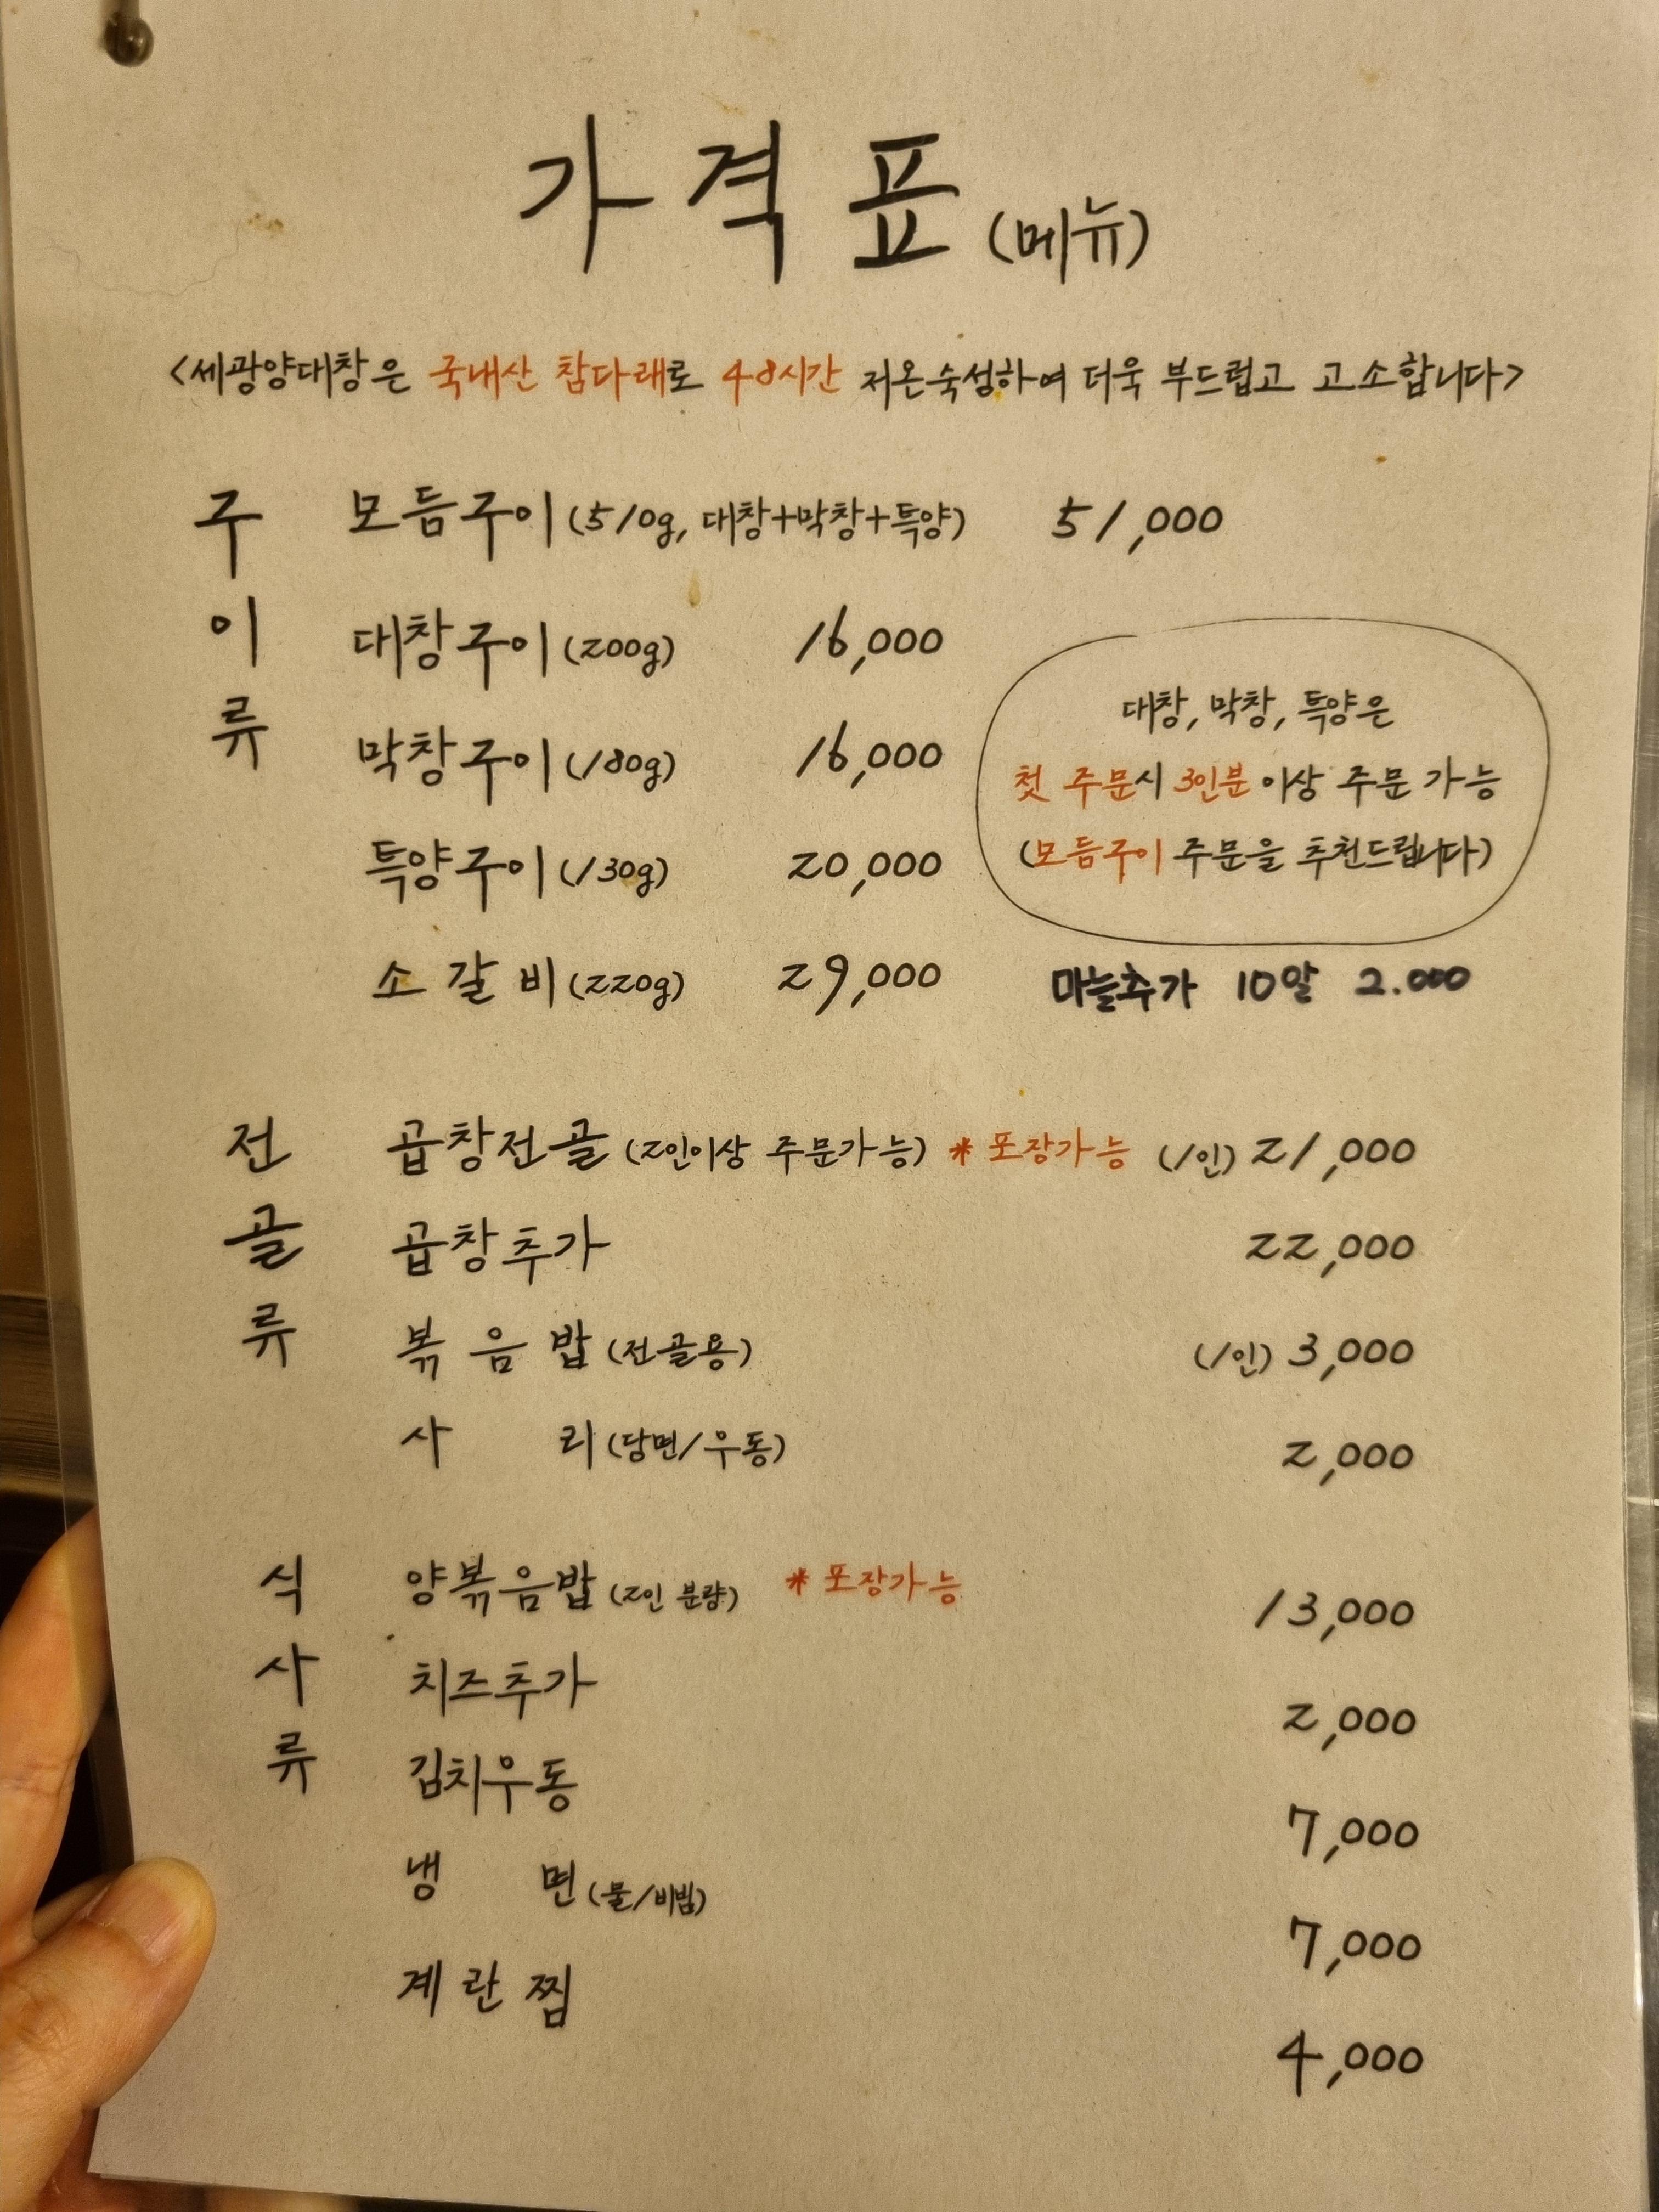 가격표 (메뉴)
<세광양대창은 국내산 참다래로 48시간 저온숙성하여 더욱 부드럽고 고소합니다>
구이류
모듬구이 (510g, 대창+막창+특양) 51,000
대창구이 (200g) 16,000
막창구이 (180g) 16,000
특양구이 (130g) 20,000
소갈비 (220g) 29,000
대창, 막창, 특양은
첫 주문시 3인분 이상 주문 가능
(모듬구이 주문을 추천드립니다)
마늘추가 10알 2.000
전골류
곱창전골 (2인이상 주문가능) * 포장가능 (1인) 21,000
곱창추가 22,000
볶음밥 (전골용) (1인) 3,000
사리 (당면/우동) 2,000
식사류
양볶음밥 (2인 분량) * 포장가능 13,000
치즈추가 2,000
김치우동 7,000
냉면 (물/비빔) 7,000
계란찜 4,000